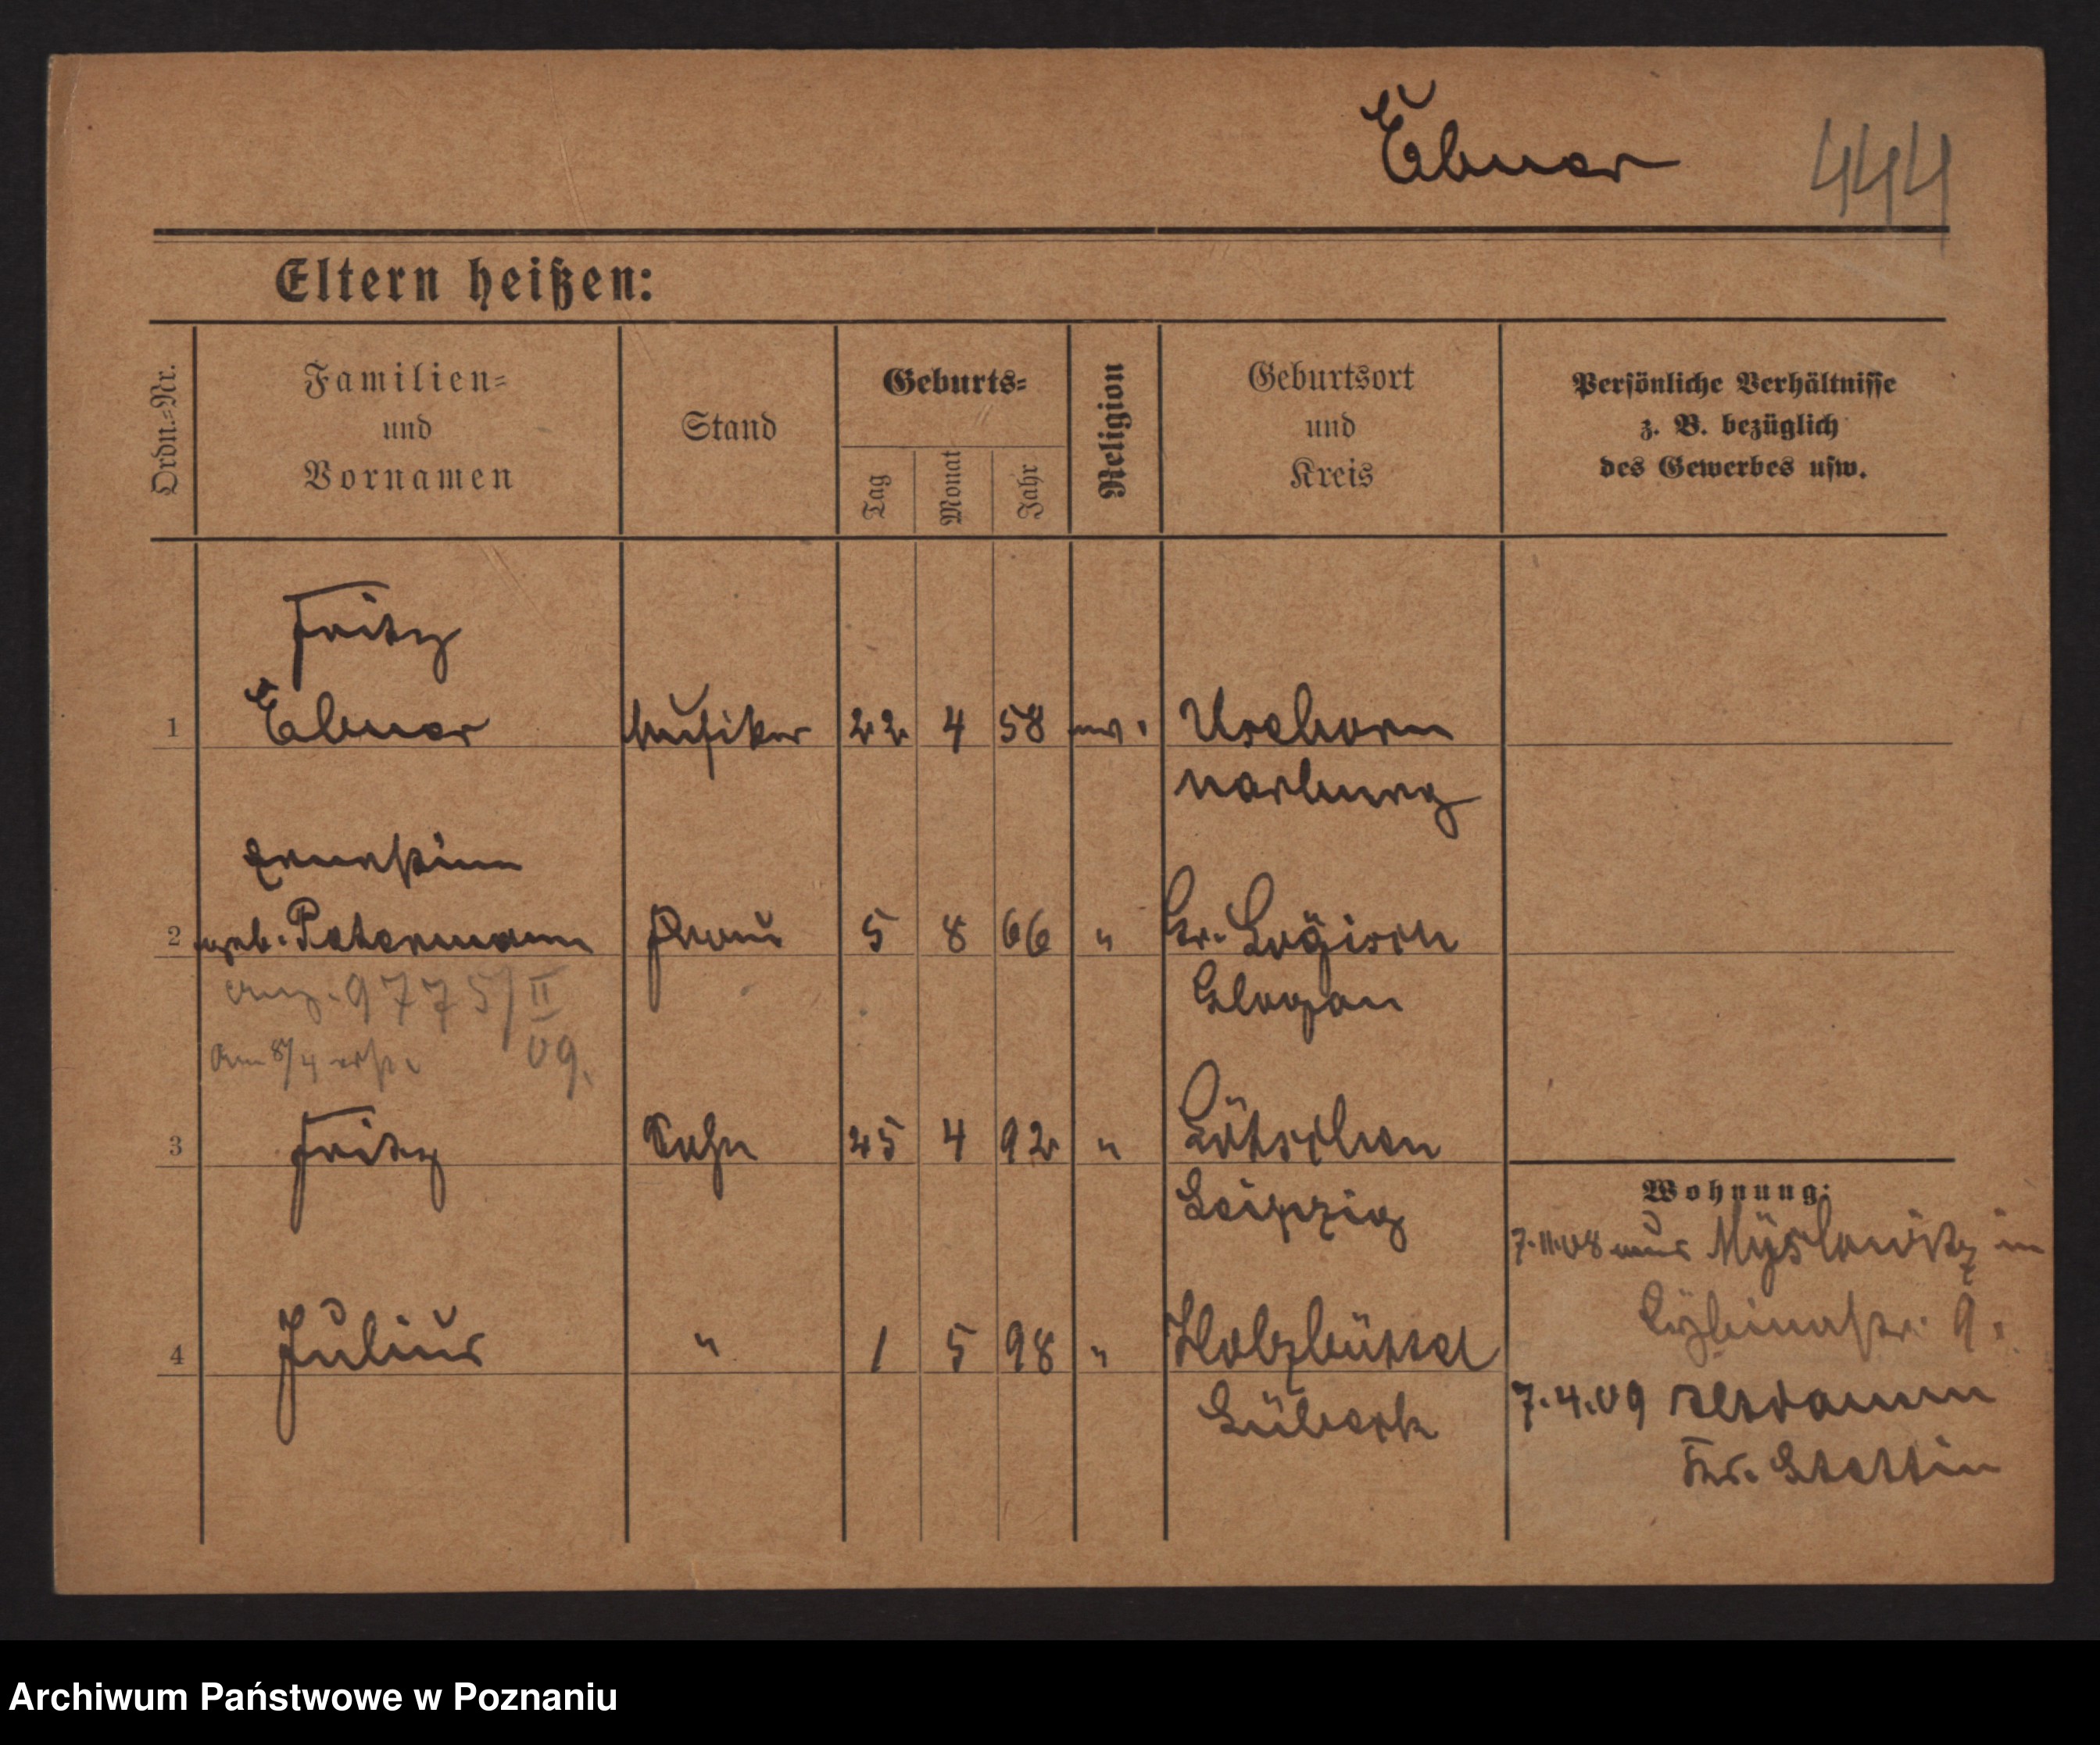 Ebner 444
Eltern heißen:
Ordn.=Nr.
Familien=
und
Vornamen
Stand
Geburts=
Tag
Monat
Jahr
Religion
Geburtsort
und
Kreis
Persönliche Verhältnisse
z. B. bezüglich
des Gewerbes usw.
Fritz
1 Ebner Musiker 22 4 58 ev.
Ernestine
2 geb. Petermann Frau 5 8 66 "
Glogau
9775/II
09.
3 Fritz Sohn 25 4 92 "
Leipzig
4 Julius " 1 5 98 "
Lübeck
Wohnung:
7.11.08 aus Myslowitz in
Cybinastr. 9.
7.4.09 Altdamm
Kr. Stettin
Archiwum Państwowe w Poznaniu